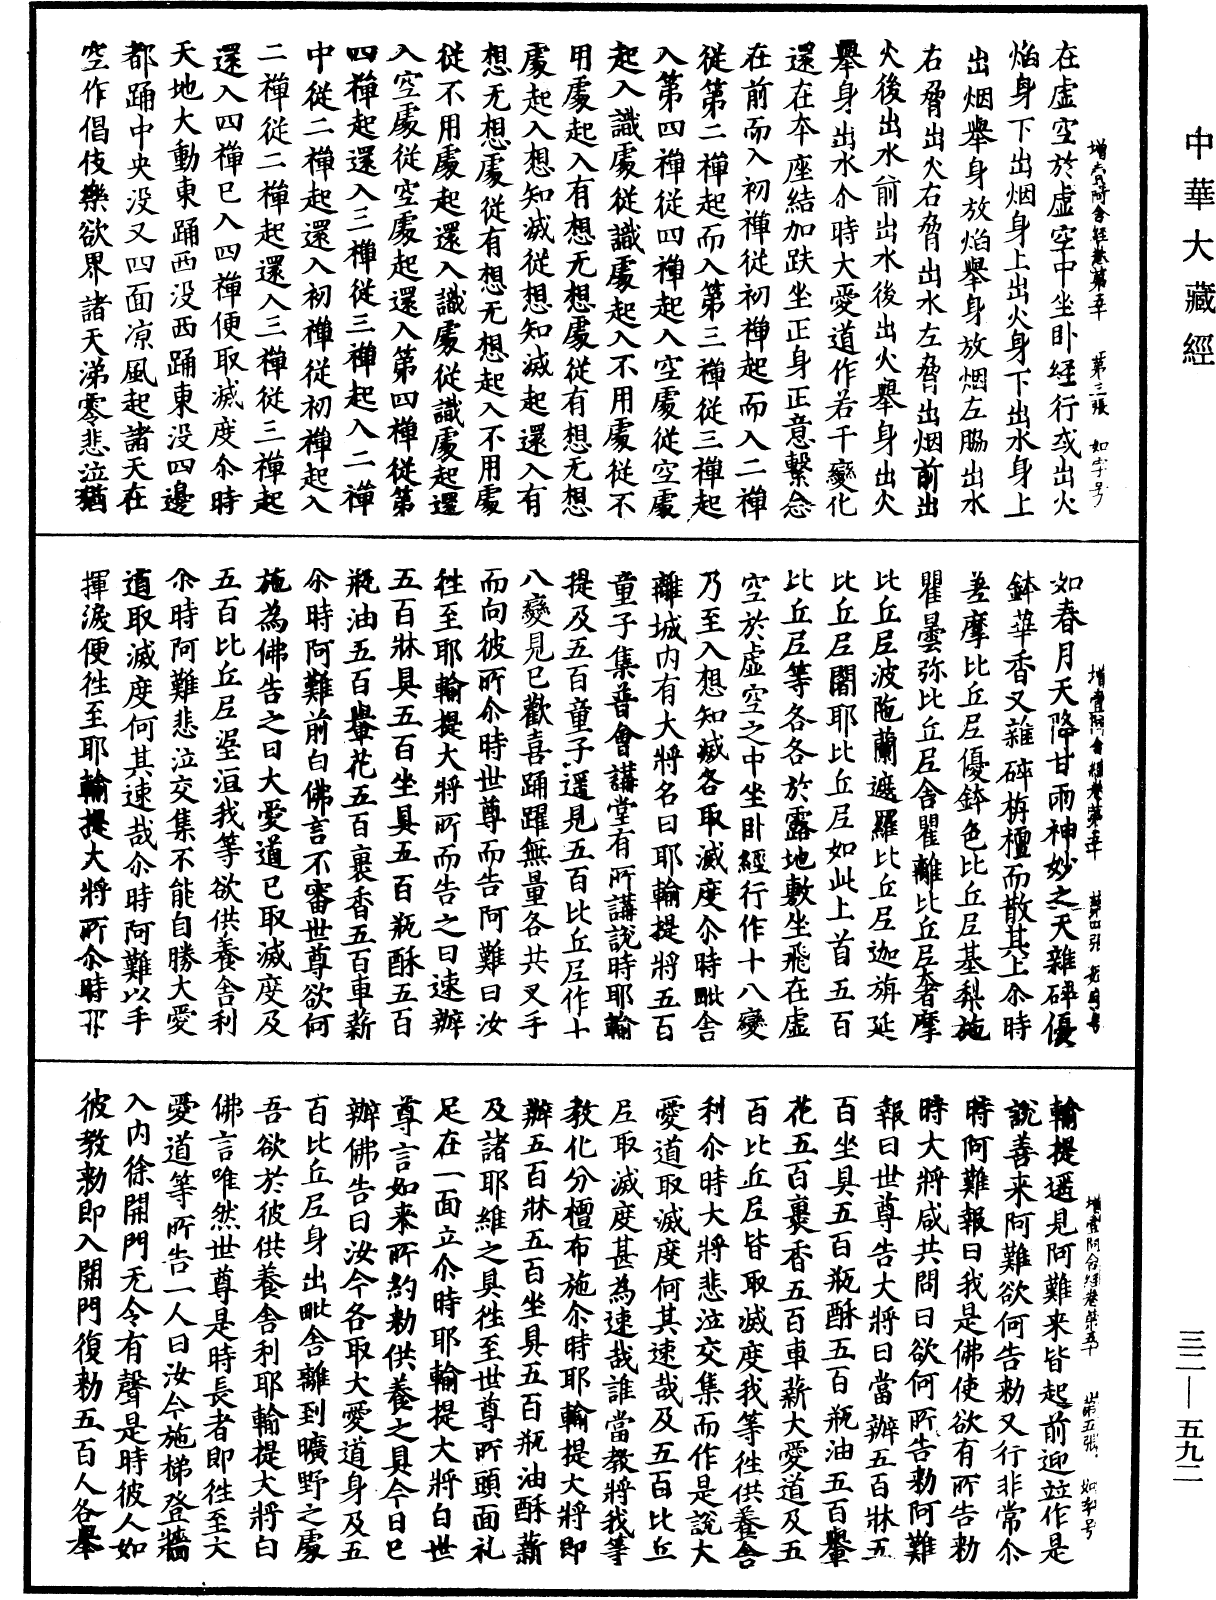 中華大藏經
增壹阿含經卷第五十　第三張　如字号
在虛空於虛空中坐卧經行或出火
焰身下出烟身上出火身下出水身上
出烟舉身放焰舉身放烟左脇出水
右脅出火右脅出水左脅出烟前出
火後出水前出水後出火舉身出火
舉身出水尒時大愛道作若干變化
還在夲座結加趺坐正身正意繫念
在前而入初禪從初禪起而入二禪
從第二禪起而入第三禪從三禪起
入第四禪從四禪起入空處從空處
起入識處從識處起入不用處從不
用處起入有想无想處從有想无想
處起入想知滅從想知滅起還入有
想无想處從有想无想起入不用處
從不用處起還入識處從識處起還
入空處從空處起還入第四禪從第
四禪起還入三禪從三禪起入二禪
中從二禪起還入初禪從初禪起入
二禪從二禪起還入三禪從三禪起
還入四禪已入四禪便取滅度尒時
天地大動東踊西没西踊東没四邊
都踊中央没又四面凉風起諸天在
空作倡伎樂欲界諸天涕零悲泣猶
增壹阿含經卷第五十　第四張　如字号
如春月天降甘雨神妙之天雜碎優
鉢華香又雜碎栴檀而散其上尒時
差摩比丘尼優鉢色比丘尼基梨施
瞿曇弥比丘尼舍瞿離比丘尼奢摩
比丘尼波陁蘭遮羅比丘尼迦旃延
比丘尼闍耶比丘尼如此上首五百
比丘尼等各各於露地敷坐飛在虛
空於虛空之中坐卧經行作十八變
乃至入想知滅各取滅度尒時毗舍
離城内有大將名曰耶輸提將五百
童子集普會講堂有所講說時耶輸
提及五百童子遥見五百比丘尼作十
八變見已歡喜踊躍無量各共叉手
而向彼所尒時世尊而告阿難曰汝
往至耶輸提大將所而告之曰速辦
五百牀具五百坐具五百瓶酥五百
瓶油五百轝花五百裹香五百車薪
尒時阿難前白佛言不審世尊欲何
施為佛告之曰大愛道已取滅度及
五百比丘尼埿洹我等欲供養舍利
尒時阿難悲泣交集不能自勝大愛
道取滅度何其速哉尒時阿難以手
揮淚便往至耶輸提大將所尒時耶
增壹阿含經卷第五十　第五張　如字号
輸提遥見阿難来皆起前迎並作是
說善来阿難欲何告勑又行非常尒
時阿難報曰我是佛使欲有所告勑
時大將咸共問曰欲何所告勑阿難
報曰世尊告大將曰當辦五百牀五
百坐具五百瓶酥五百瓶油五百轝
花五百裹香五百車薪大愛道及五
百比丘尼皆取滅度我等往供養舍
利尒時大將悲泣交集而作是說大
愛道取滅度何其速哉及五百比丘
尼取滅度甚為速哉誰當教將我等
教化分檀布施尒時耶輸提大將即
辦五百牀五百坐具五百瓶油酥薪
及諸耶維之具往至世尊所頭面礼
足在一面立尒時耶輸提大將白世
尊言如来所約勑供養之具今日已
辦佛告曰汝今各取大愛道身及五
百比丘尼身出毗舍離到曠野之處
吾欲於彼供養舍利耶輸提大將白
佛言唯然世尊是時長者即往至大
愛道等所告一人曰汝今施梯登牆
入内徐開門无令有聲是時彼人如
彼教勑即入開門復勑五百人各舉
三二—五九二